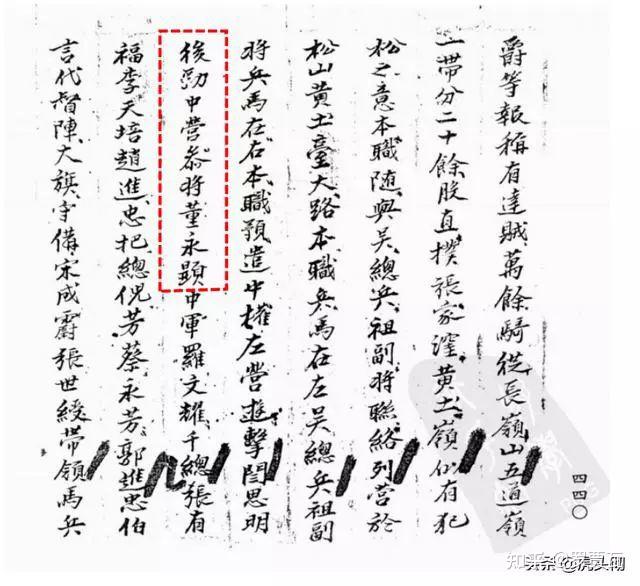 爵等報稱有達賊萬餘騎從長嶺山五道嶺
一帶分二十餘股直撲張家窪黃土嶺似有犯
松之意本職隨與吳總兵祖副將聯絡列營於
松山黃土臺大路本職兵馬在左吳總兵祖副
將兵馬在右本職預造中權左營遊擊閻思明
後勁中營叅將董永顕中軍羅文耀千總張有
福李天培趙進忠把總倪芳蔡永芳郭進忠伯
言代督陣大旗守備宋成爵張世綬帶領馬兵
四四〇
知乎
头条@虎头砌